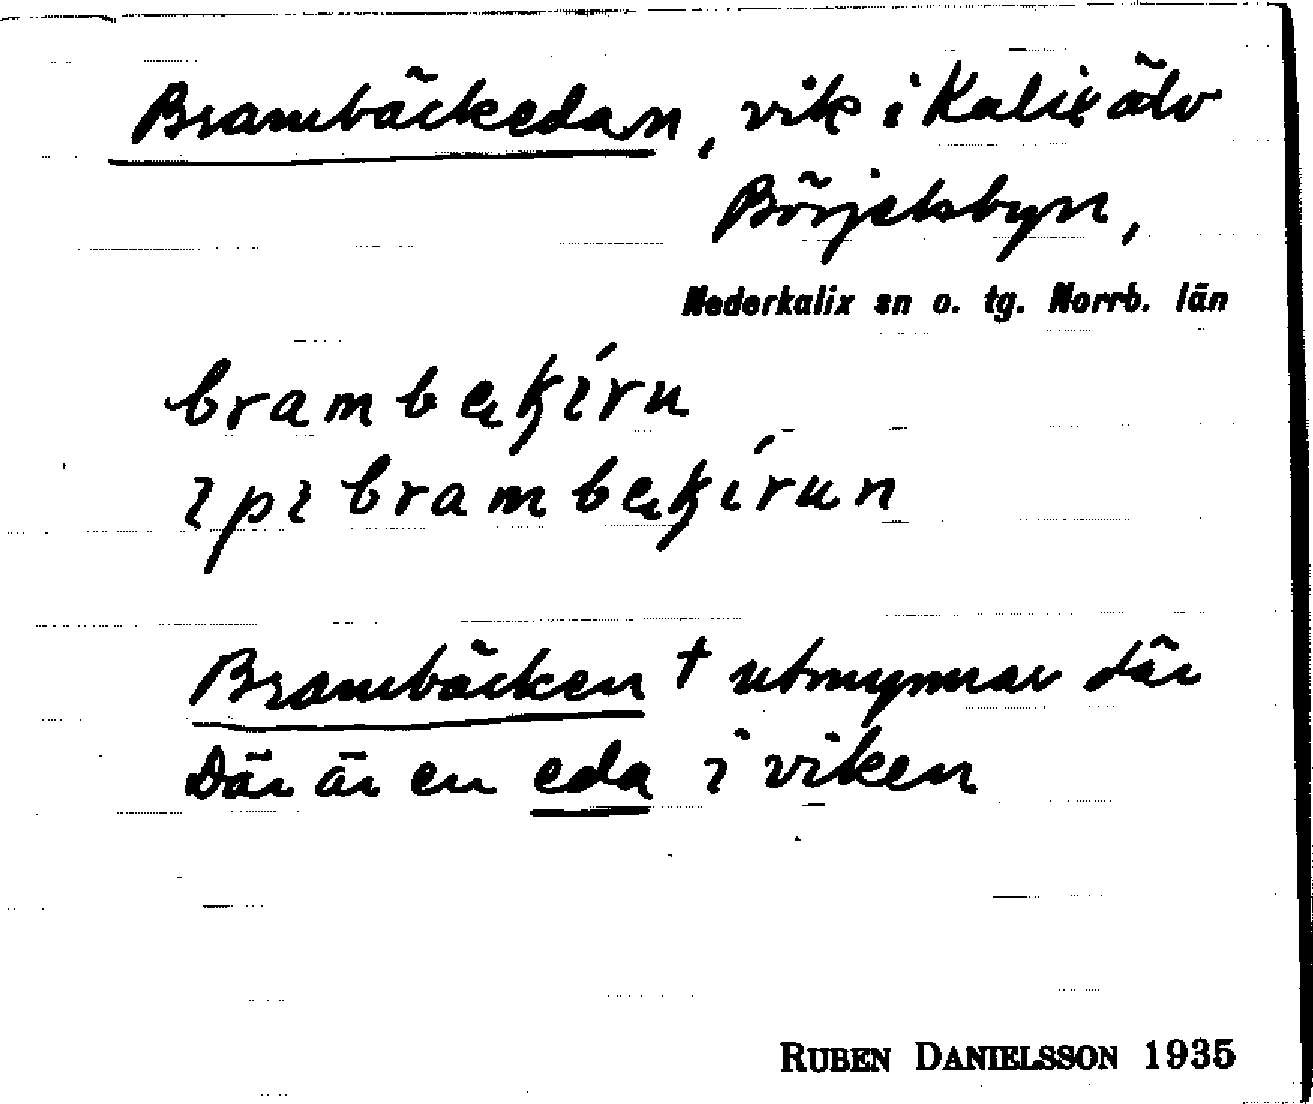 Brambäckedan, vik i Kalix älv
Börjelsbyn,
Nederkalix sn o. tg. Norrb. län
brambęķíru
ɩpɩ brambęķírun
Brambäcken + utmynnar där
Där är en eda i viken
RUBEN DANIELSSON 1935